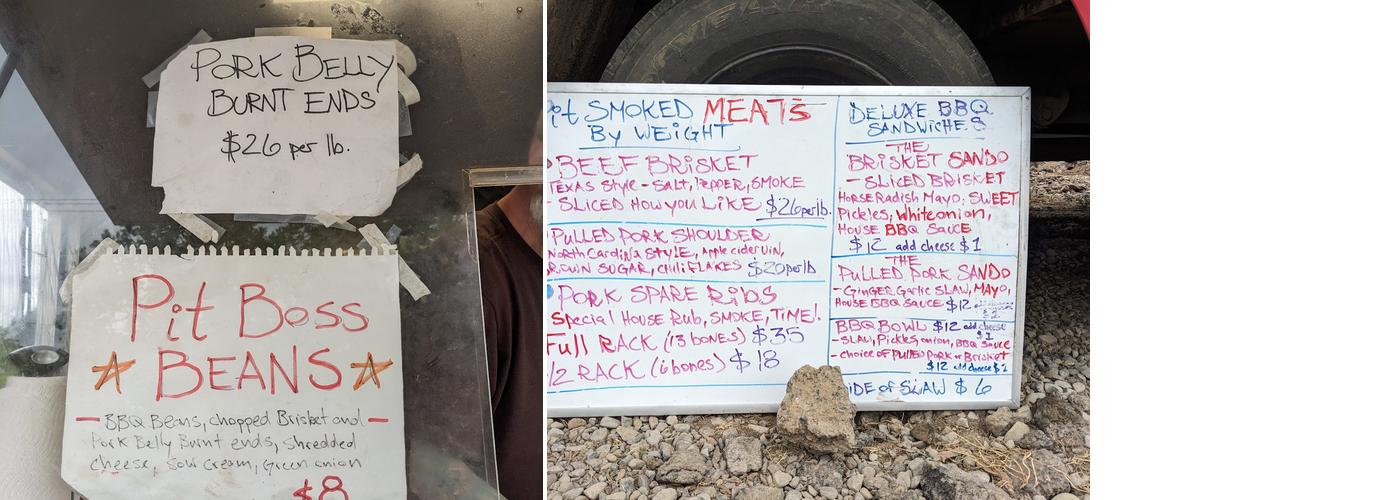 PORK BELLY
BURNT ENDS
$26 per lb.
Pit Boss
BEANS
- BBQ Beans, chopped Brisket and -
Pork Belly Burnt ends, shredded
cheese, Sour cream, Green onion
$8
Pit SMOKED MEATS
By WEIGHT
BEEF BRISKET
TEXAS Style - SALT, PEPPER, SMOKE
- SLICED HOW you LIKE $26 per lb.
PULLED PORK SHOULDER
North Carolina STYLE, Apple cider Vin,
BROWN SUGAR, CHILI FLAKES $20 per lb
PORK SPARE RiBS
Special House Rub, SMOKE, TIME!
Full RACK (13 BONES) $35
1/2 RACK (6 bones) $18
DELUXE BBQ
SANDWiCHES
THE
BRiSKET SANDO
- SLiCED BRiSKET
HORSERadish Mayo, SWEET
Pickles, White onion,
HOUSE BBQ SAUCE
$12 add cheese $1
THE
PULLED PORK SANDO
- GiNGER Garlic SLAW, MAYO,
HOUSE BBQ SAUCE $12
BBQ BOWL $12 add cheese
$1
- SLAW, Pickles, onion, BBQ Sauce
- choice of PULLED PORK or Brisket
$12 add cheese $1
SIDE of SLAW $6